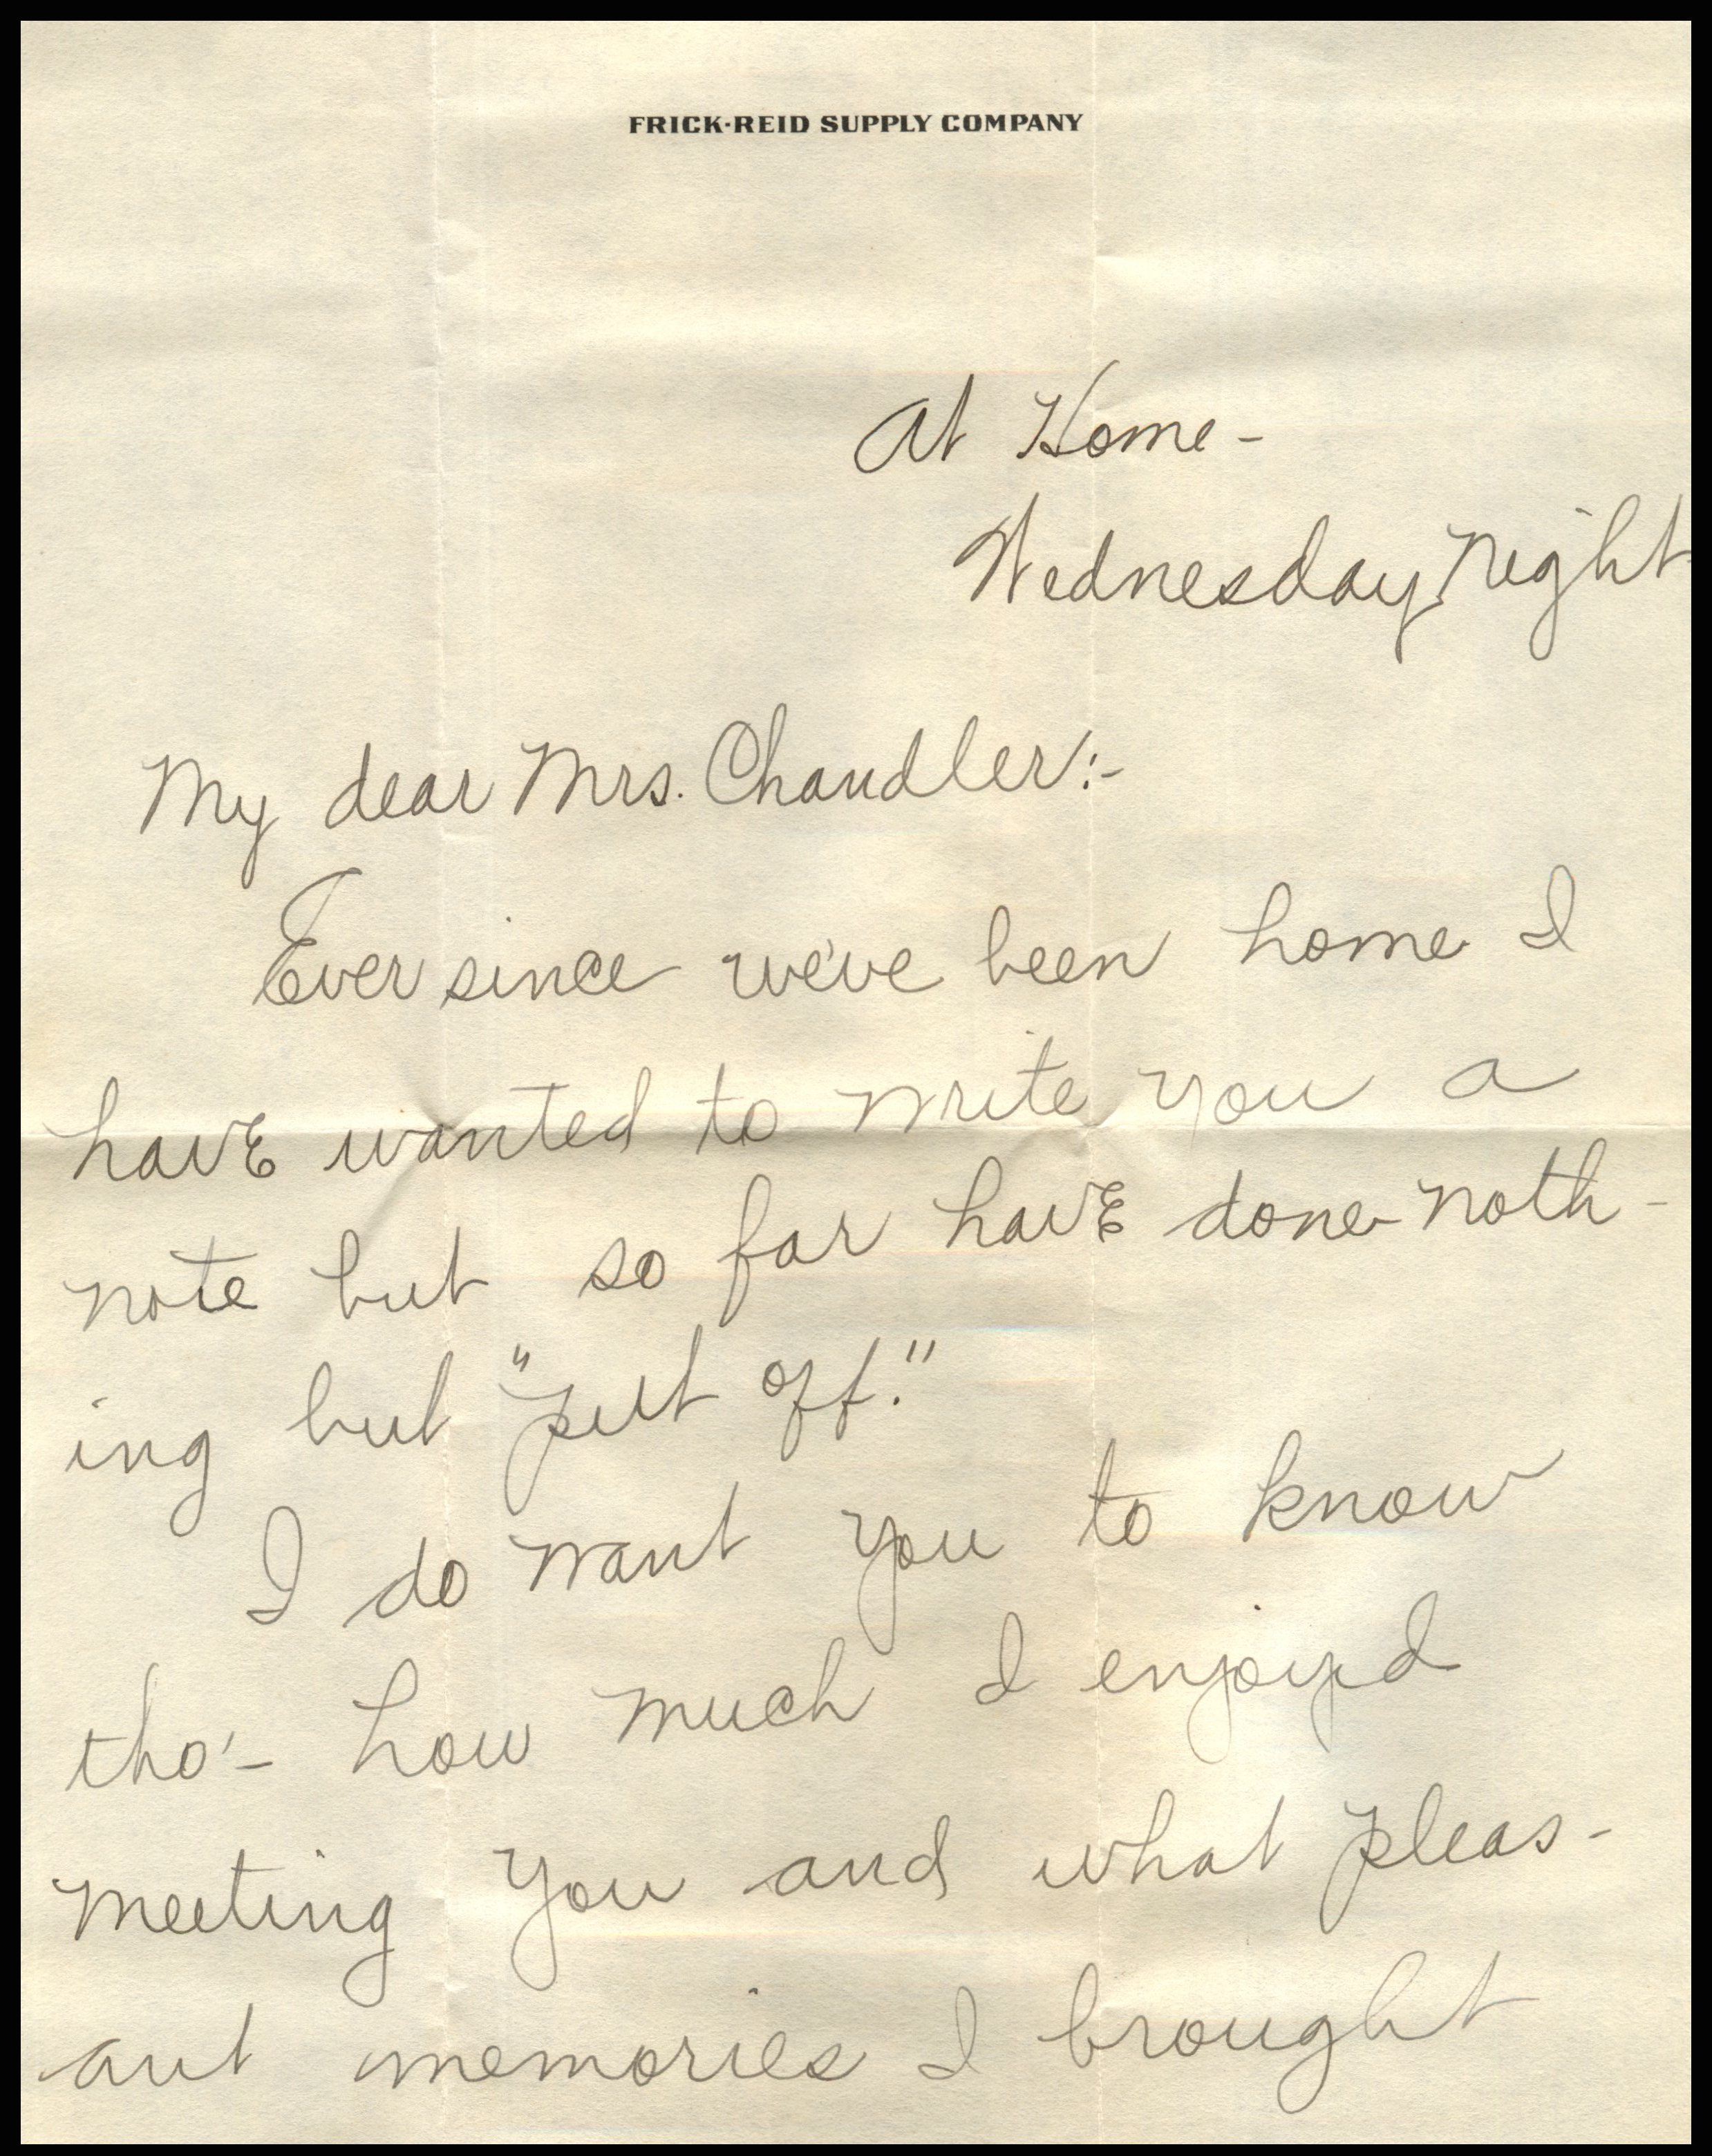 FRICK-REID SUPPLY COMPANY
At Home -
Wednesday Night
My dear Mrs. Chandler:-
Ever since we've been home I
have wanted to write you a
note but so far have done noth-
ing but "put off."
I do want you to know
tho'- how much I enjoyed
meeting you and what pleas-
ant memories I brought